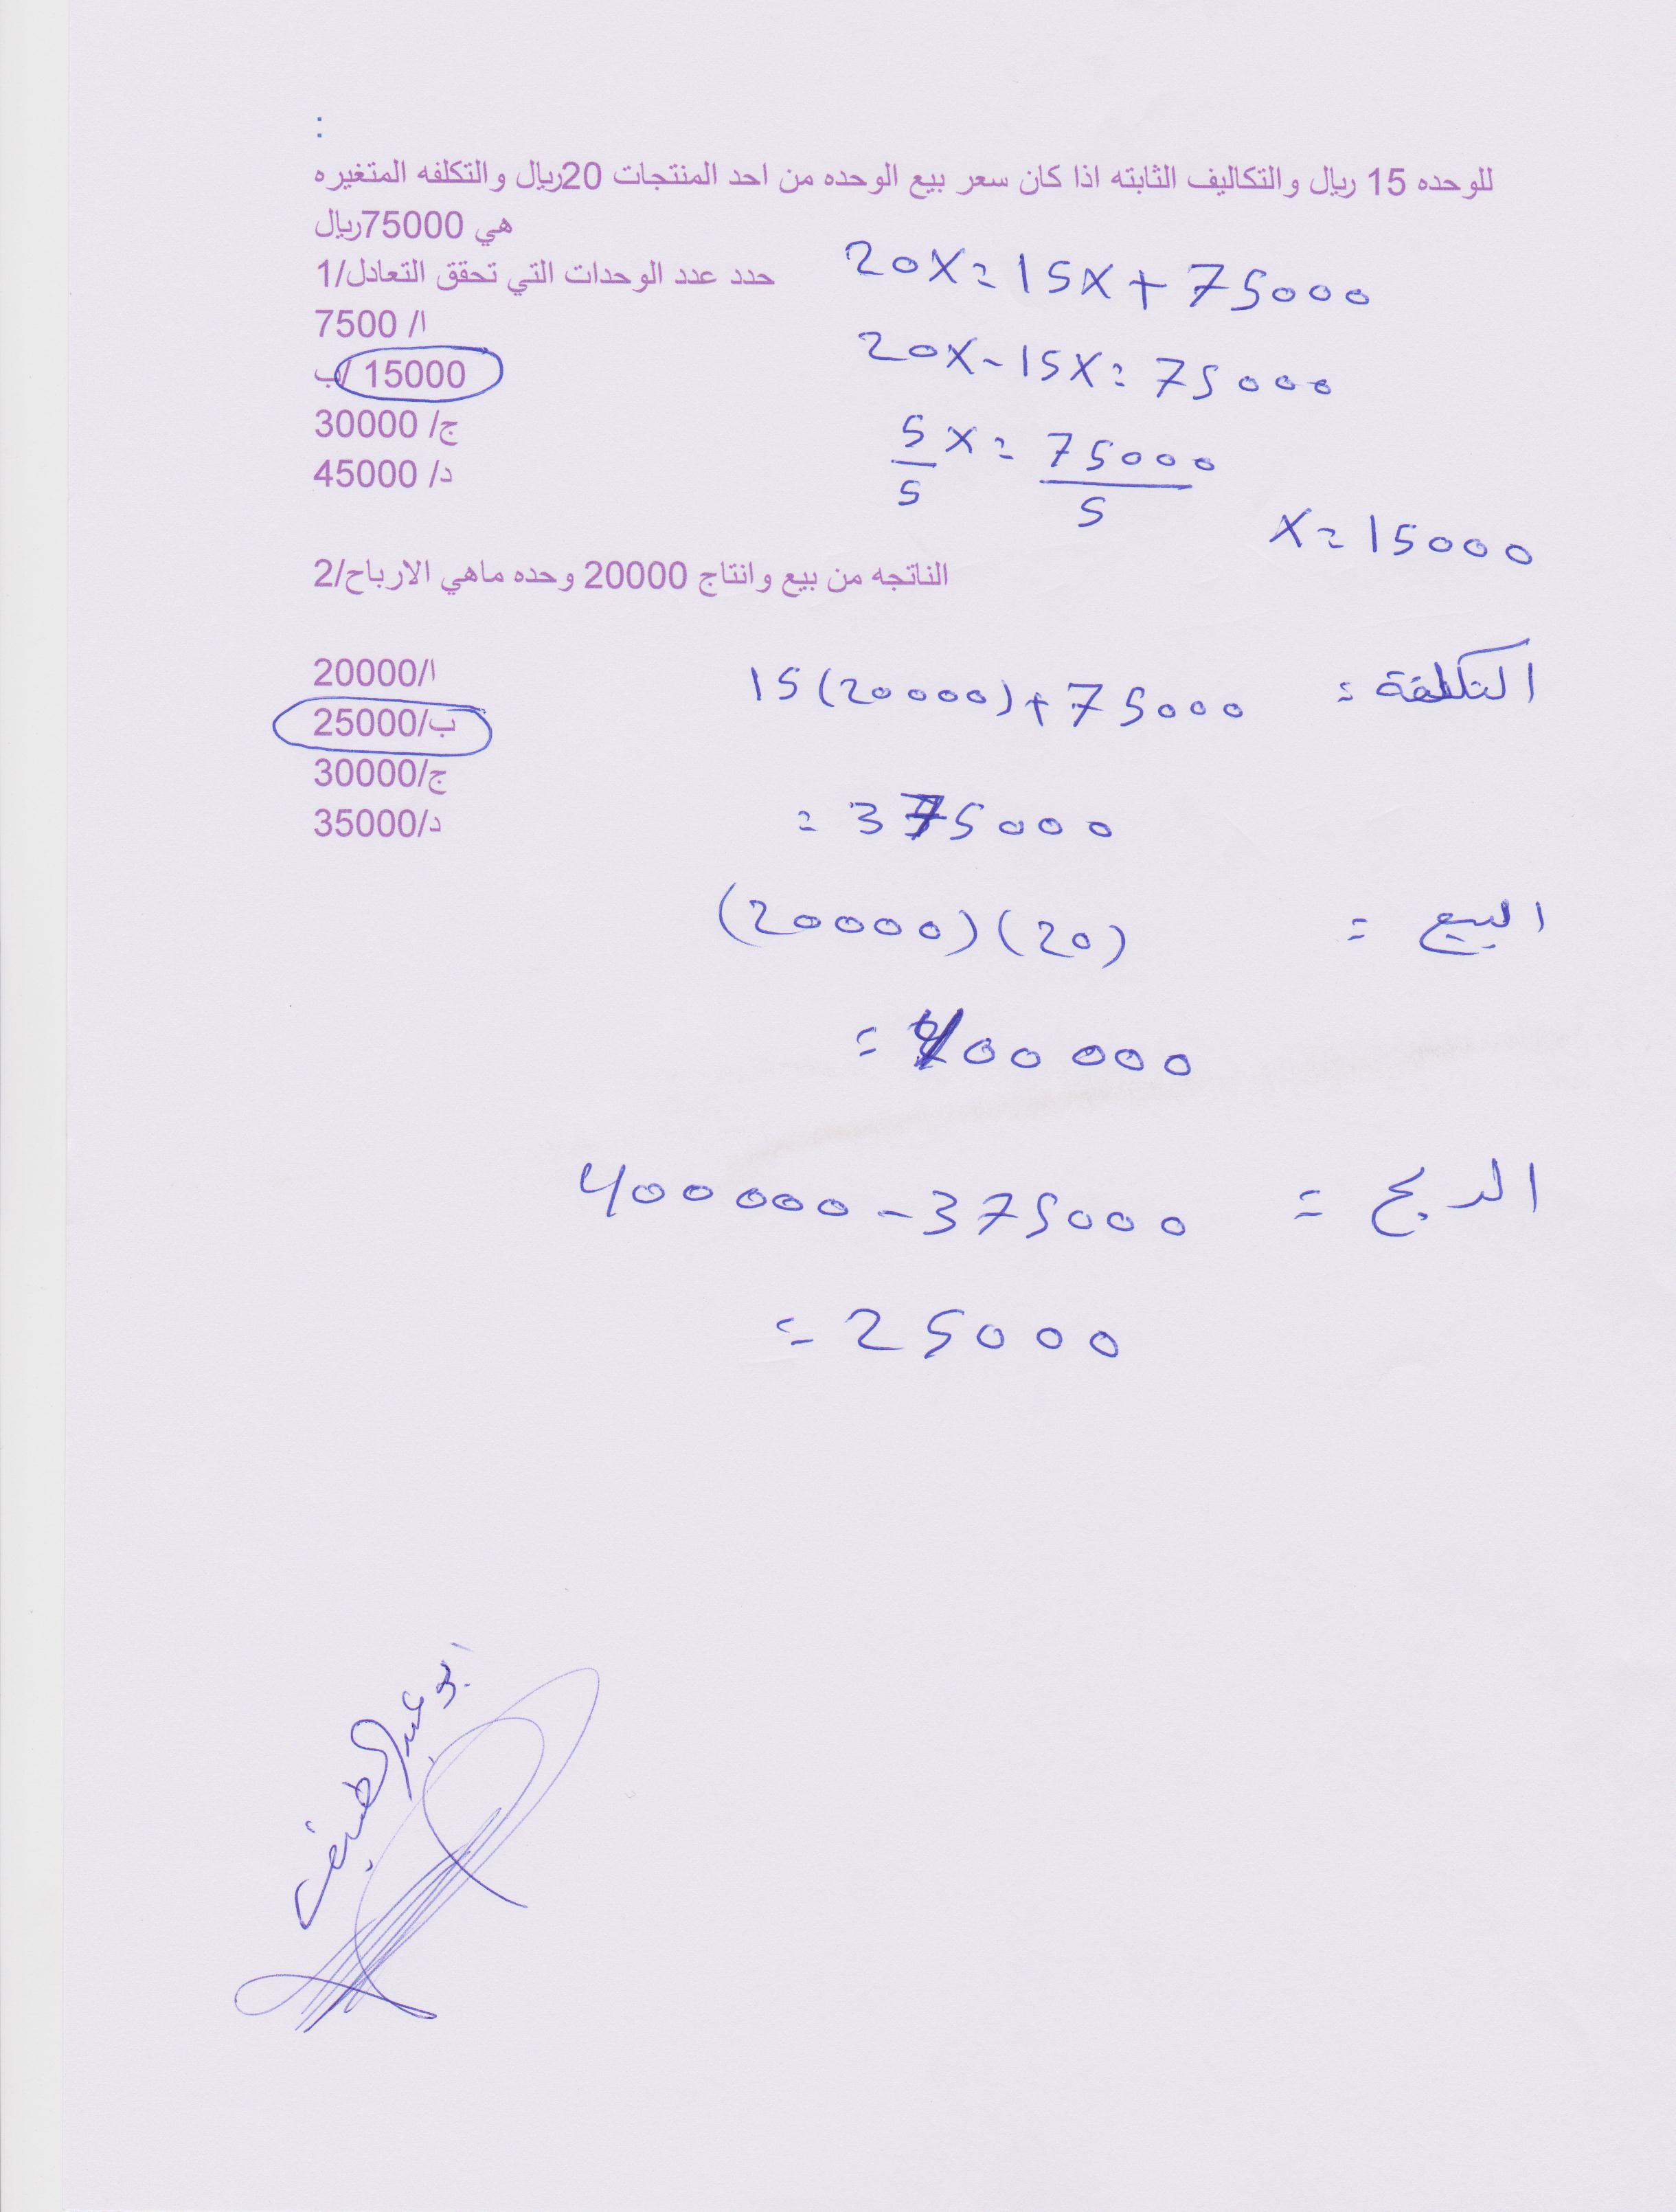 :
للوحده 15 ريال والتكاليف الثابته اذا كان سعر بيع الوحده من احد المنتجات 20ريال والتكلفه المتغيره
هي 75000ريال
حدد عدد الوحدات التي تحقق التعادل/1
20X=15X+75000
ا/ 7500
20X-15X=75000
ب/ 15000
ج/ 30000
5/5 X = 75000/5
د/ 45000
X=15000
الناتجه من بيع وانتاج 20000 وحده ماهي الارباح/2
ا/20000
التكلفة = 15(20000)+75000
ب/25000
ج/30000
د/35000
= 375000
البيع = (20000)(20)
= 400000
الربح = 400000-375000
= 25000